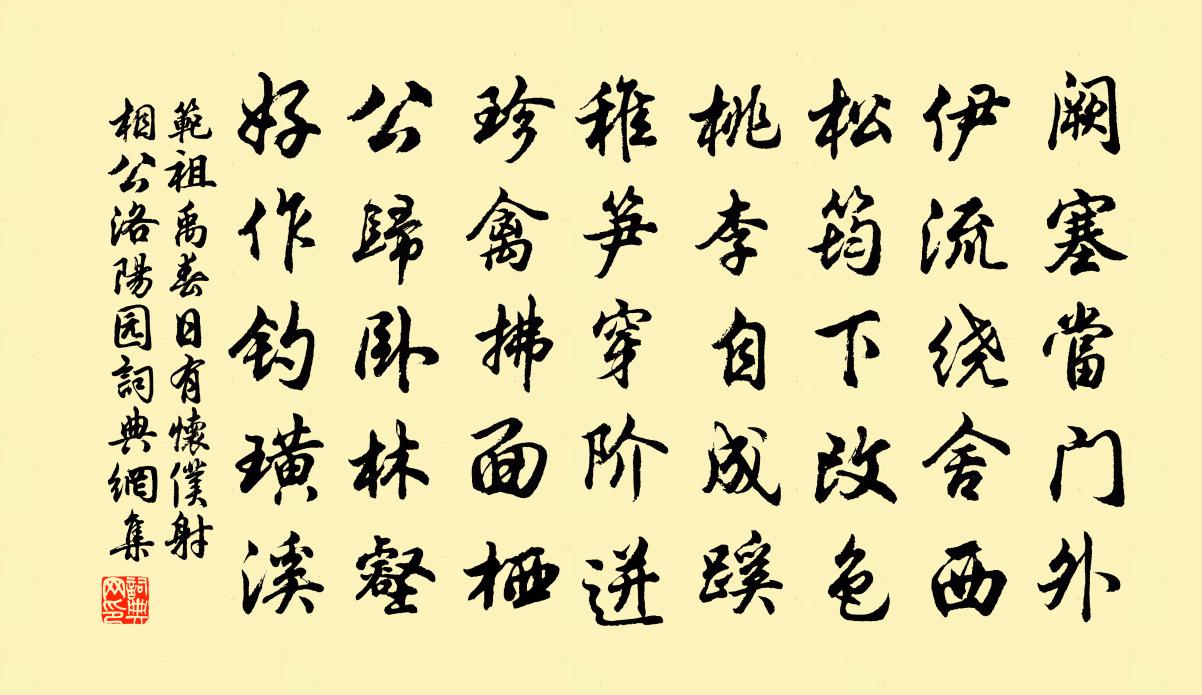 阙塞當门外
伊流绕舍西
松筠下改色
桃李自成蹊
稚笋穿阶迸
珍禽拂面栖
公歸卧林壑
好作钓璜溪
範祖禹春日有懷僕射
相公洛陽园詞典網集
詞典网印